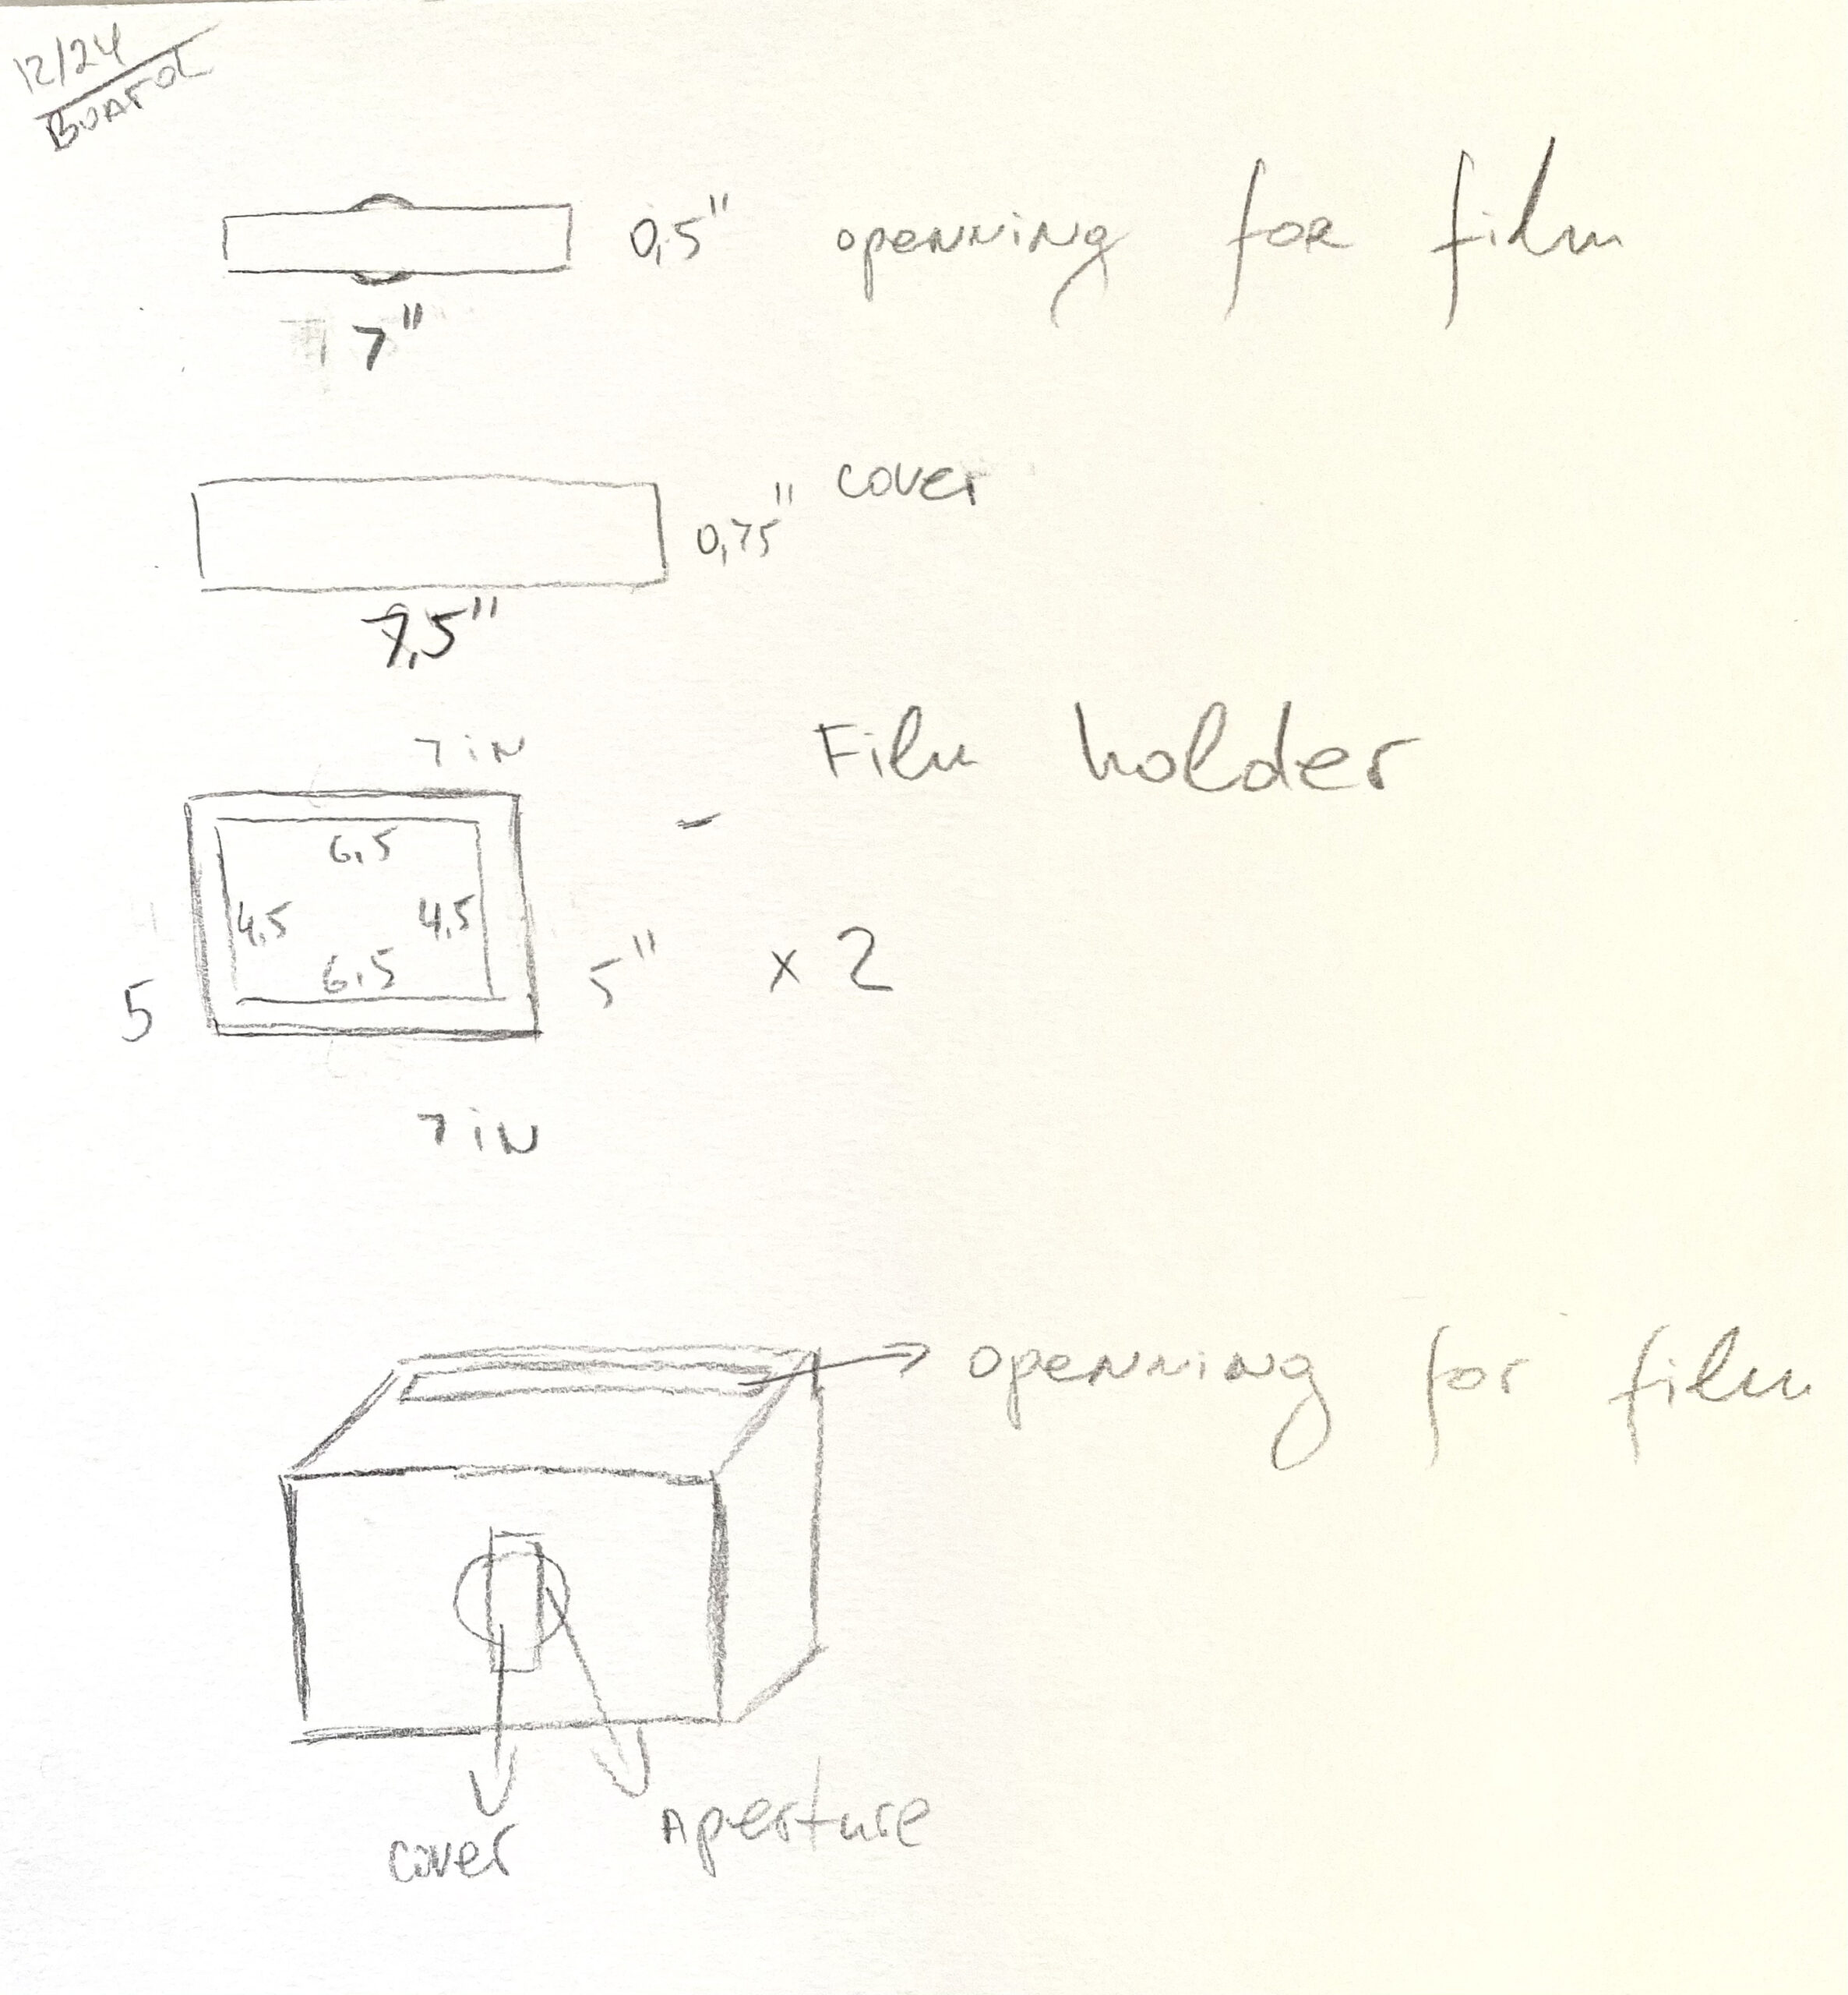 12/24
BOARD
0,5" openning for film
7"
cover
0,75"
7,5"
7 in
Film holder
6,5
4,5 4,5
6,5
5 5" x 2
7 in
openning for film
cover
Aperture